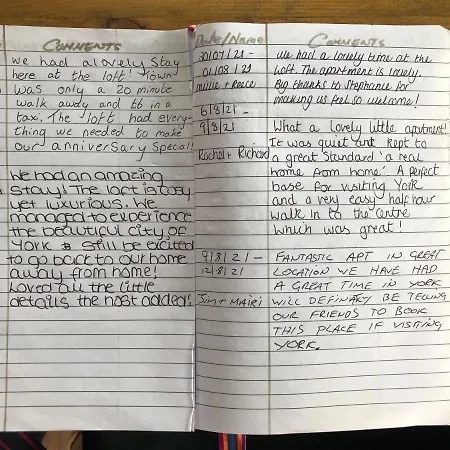 COMMENTS
we had a lovely stay
here at the loft! Town
was only a 20 minute
walk away and £6 in a
taxi. The loft had every-
thing we needed to make
our anniversary special!
We had an amazing
stay! The loft is cosy
yet luxurious. We
managed to experience
the beautiful city of
York & still be excited
to go back to our home
away from home!
Loved all the little
details the host added!
Date/Name
COMMENTS
30/07/21 -
01/08/21
We had a lovely time at the
loft. The apartment is lovely.
Big thanks to Stephanie for
making us feel so welcome!
6/8/21 -
9/8/21
Rachel + Richard
What a lovely little apartment!
It was quiet and kept to
a great standard 'a real
home from home'. A perfect
base for visiting York
and a very easy half hour
walk in to the centre
which was great!
9/8/21 -
12/8/21
Jim + MAIRI
FANTASTIC APT IN GREAT
LOCATION WE HAVE HAD
A GREAT TIME IN YORK
WILL DEFINATLY BE TELLING
OUR FRIENDS TO BOOK
THIS PLACE IF VISITING
YORK.